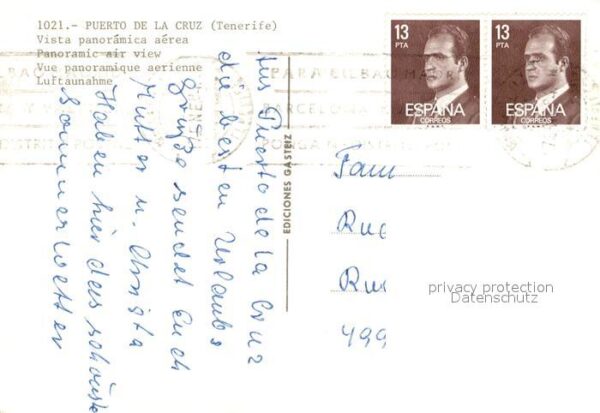 1021.- PUERTO DE LA CRUZ (Tenerife)
Vista panorámica aérea
Panoramic air view
Vue panoramique aerienne
Luftaunahme
13
PTA
ESPAÑA
CORREOS
13
PTA
ESPAÑA
CORREOS
PARA BILBAO MA
BARCELONA
PONGA
DISTRITO PO
EDICIONES GASTEIZ
Aus Puerto de la Cruz
die besten Urlaubs
grüße sendet Euch
Mutter u. Christa
Haben hier das schönste
Sommerwetter
Fam
Rue
Rue
499
privacy protection
Datenschutz